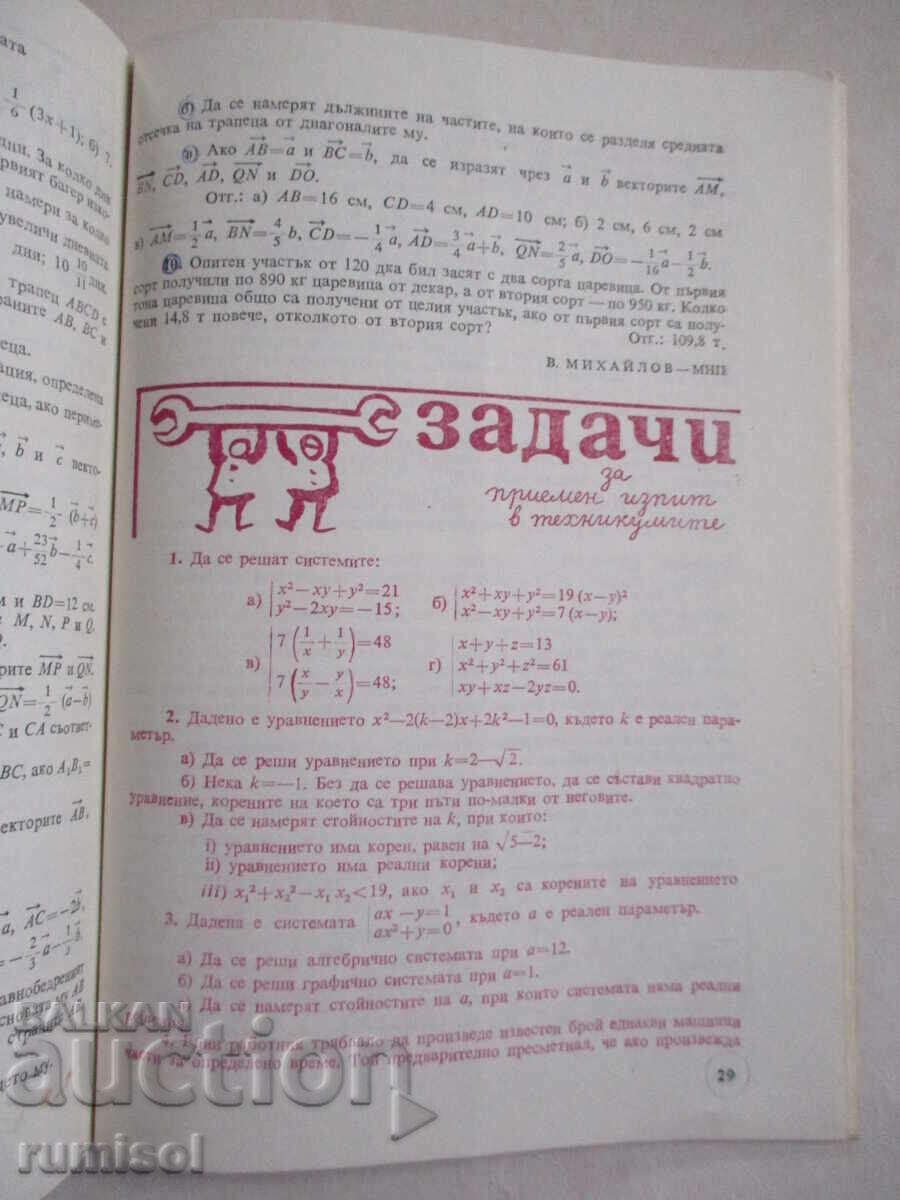 ата
1/6 (3x+1); б) ?.
дни. За колко дни
рвият багер изко-
намери за колко
увеличи дневната
дни; 10 10/11 дни.
трапец ABCD с
раните AB, BC и
еца.
ация, определена
еца, ако периме-
b и c векто-
MP=1/2 (b+c)
a+23/52 b−1/4 c.
и BD=12 см.
M, N, P и Q.
рите MP и QN.
QN=1/2 (a−b)
C и CA съответ-
BC, ако A₁B₁=
екторите AB,
a, AC=−2b,
=−2/3 a−1/3 b
авнобедреният
сновата му AB
б) Да се намерят дължините на частите, на които се разделя средната
отсечка на трапеца от диагоналите му.
в) Ако AB=a и BC=b, да се изразят чрез a и b векторите AM,
BN, CD, AD, QN и DO.
Отг.: а) AB=16 см, CD=4 см, AD=10 см; б) 2 см, 6 см, 2 см
в) AM=1/2 a, BN=4/5 b, CD=−1/4 a, AD=3/4 a+b, QN=2/5 a, DO=−1/16 a−1/2 b.
10. Опитен участък от 120 дка бил засят с два сорта царевица. От първия
сорт получили по 890 кг царевица от декар, а от втория сорт — по 950 кг. Колко
тона царевица общо са получени от целия участък, ако от първия сорт са полу-
чени 14,8 т повече, отколкото от втория сорт?
Отг.: 109,8 т.
В. МИХАЙЛОВ — МНП
задачи
за
приемен изпит
в техникумите
1. Да се решат системите:
а) x²−xy+y²=21
y²−2xy=−15;
б) x²+xy+y²=19(x−y)²
x²−xy+y²=7(x−y);
в) 7(1/x+1/y)=48
7(x/y−y/x)=48;
г) x+y+z=13
x²+y²+z²=61
xy+xz−2yz=0.
2. Дадено е уравнението x²−2(k−2)x+2k²−1=0, където k е реален пара-
метър.
а) Да се реши уравнението при k=2−√2.
б) Нека k=−1. Без да се решава уравнението, да се състави квадратно
уравнение, корените на което са три пъти по-малки от неговите.
в) Да се намерят стойностите на k, при които:
i) уравнението има корен, равен на √5−2;
ii) уравнението има реални корени;
iii) x₁²+x₂²−x₁ x₂<19, ако x₁ и x₂ са корените на уравнението
3. Дадена е системата ax −y=1
ax²+y=0, където a е реален параметър.
а) Да се реши алгебрично системата при a=12.
б) Да се реши графично системата при a=1.
Да се намерят стойностите на a, при които системата няма реални
4. Един работник трябвало да произведе известен брой еднакви машинни
части за определено време. Той предварително пресметнал, че ако произвежда
29
BALKAN
auction
rumisol